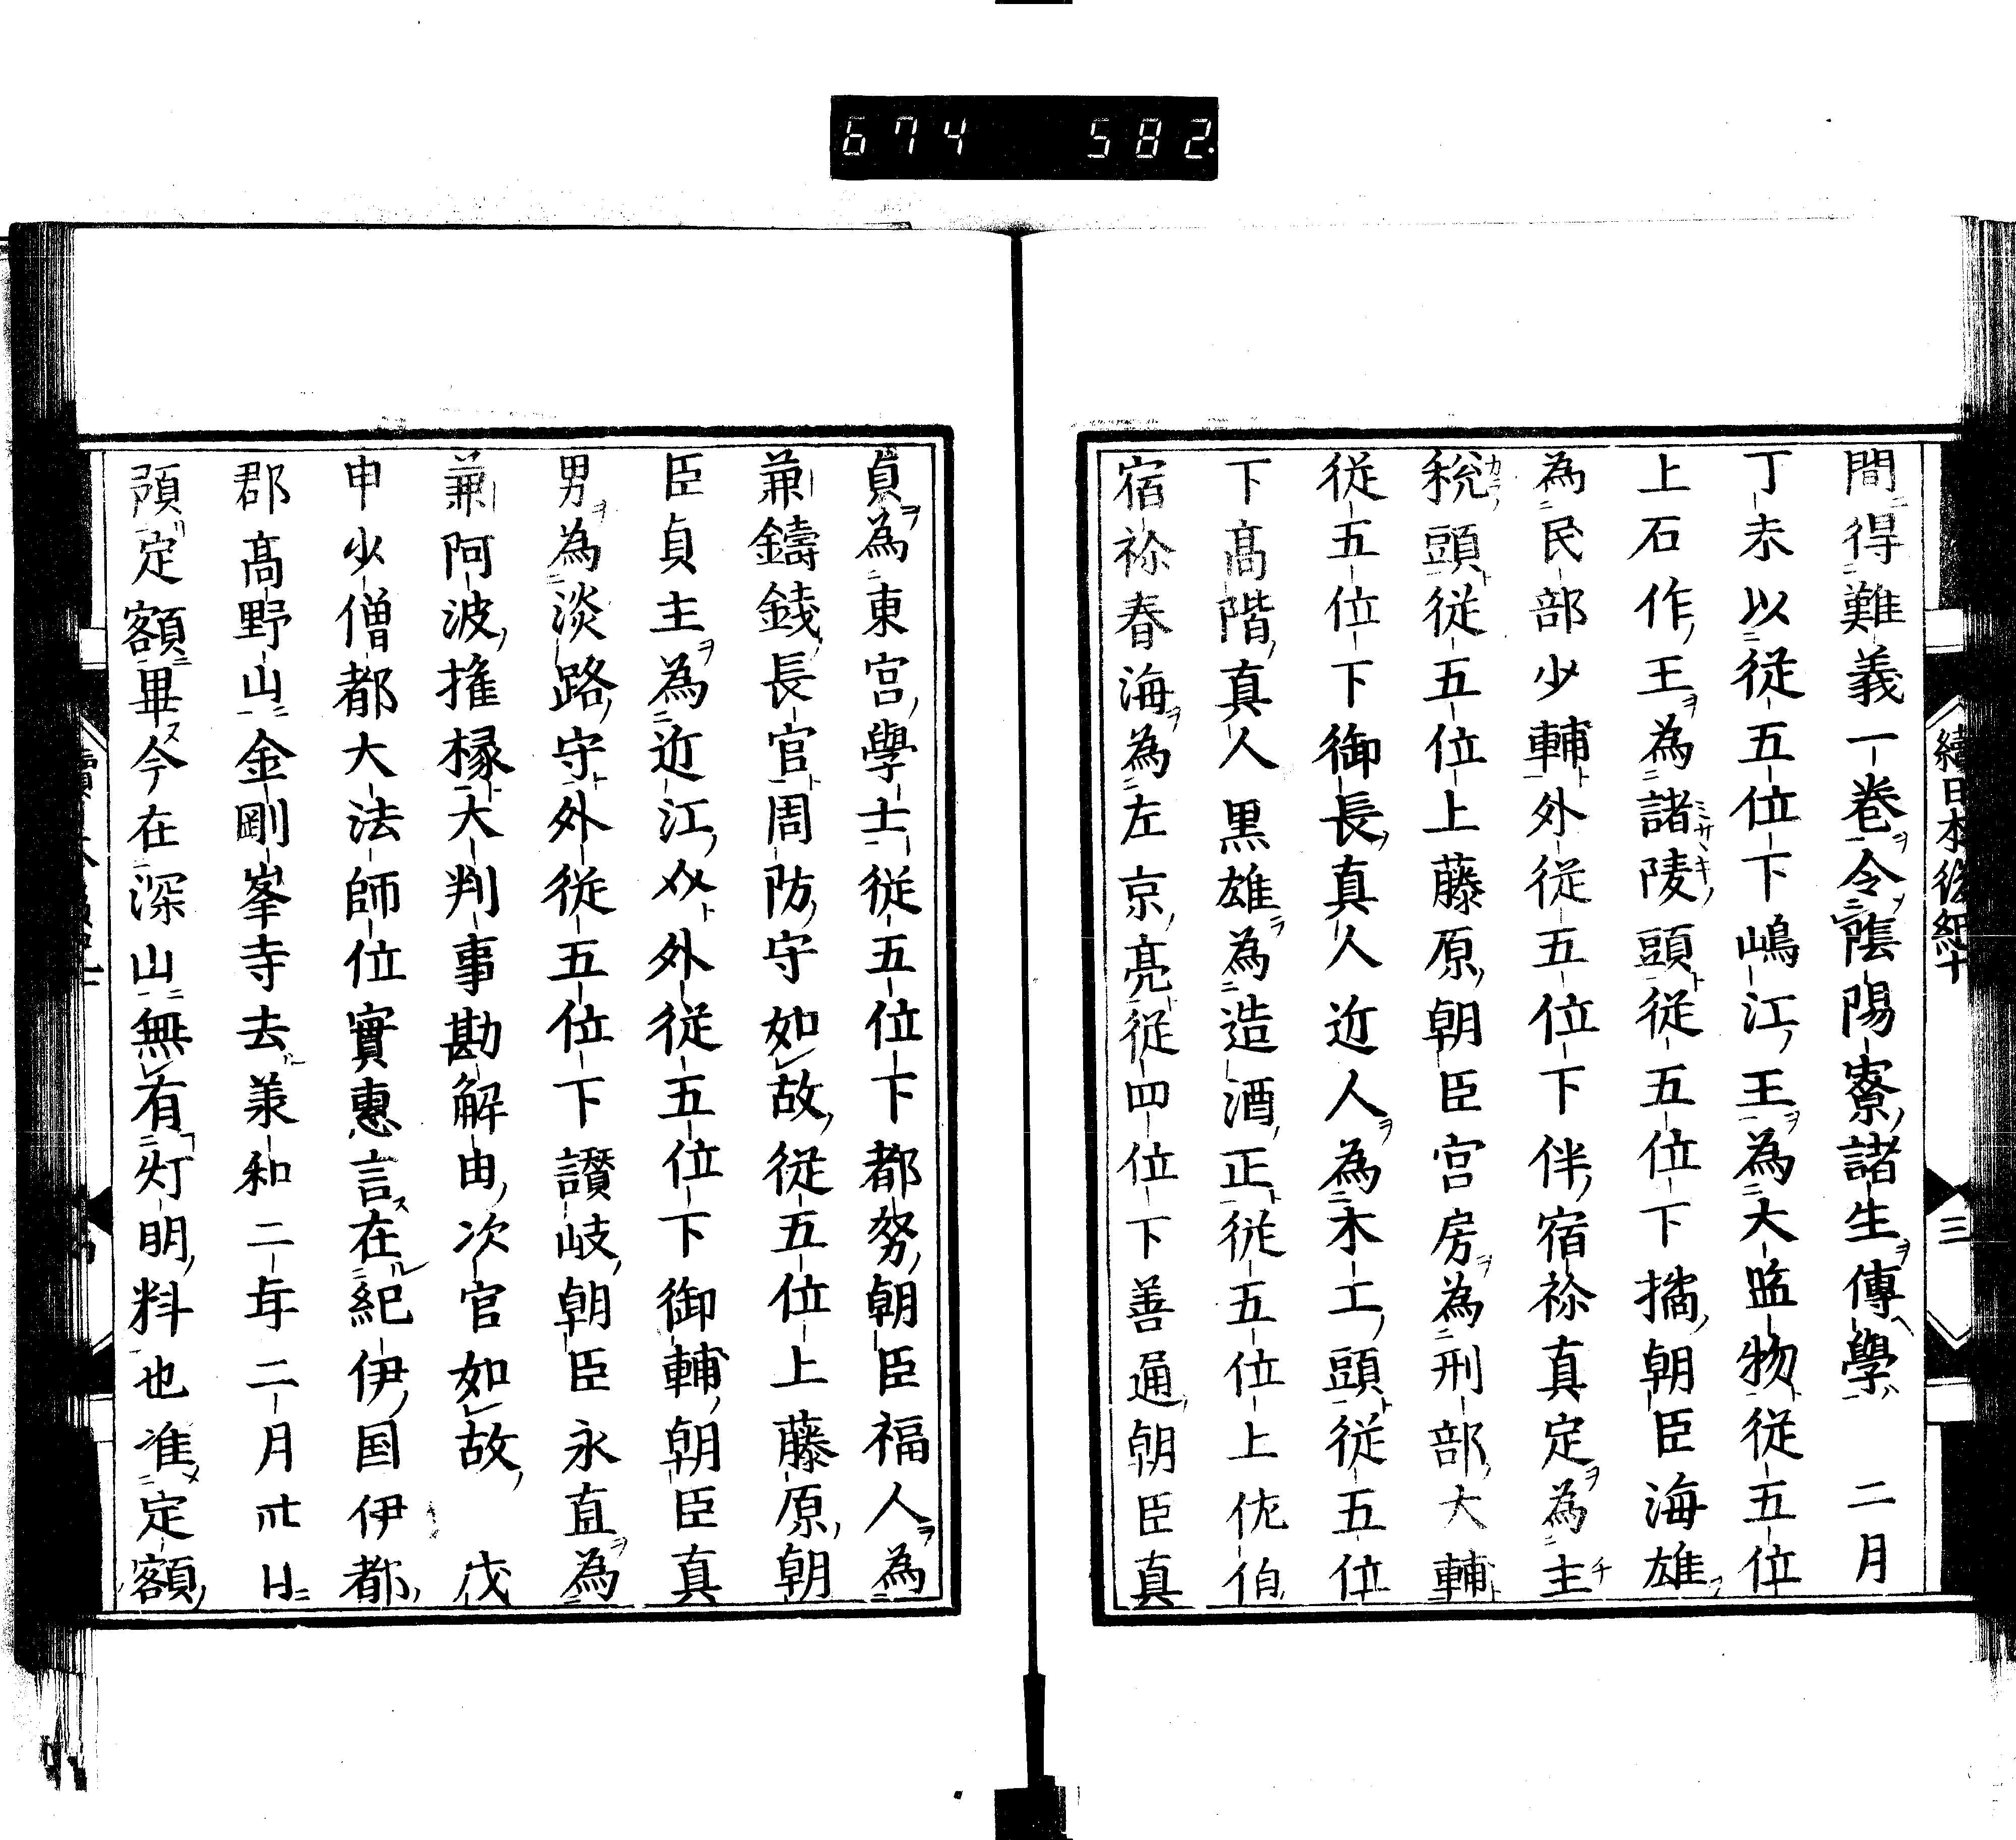 674 582
續日本後紀十
三
間得難義一巻令陰陽寮諸生傳學 二月
丁未以従五位下嶋江王為大監物従五位
上石作王為諸陵頭従五位下橘朝臣海雄
為民部少輔外従五位下伴宿祢真定為主
税頭従五位上藤原朝臣宮房為刑部大輔
従五位下御長真人近人為木工頭従五位
下高階真人黒雄為造酒正従五位上佐伯
宿祢春海為左京亮従四位下善道朝臣真
貞為東宮學士従五位下都努朝臣福人為
兼鑄錢長官周防守如故従五位上藤原朝
臣貞主為近江介外従五位下御輔朝臣真
男為淡路守外従五位下讃岐朝臣永直為
兼阿波權掾大判事勘解由次官如故 戊
申少僧都大法師位實惠言在紀伊国伊都
郡高野山金剛峯寺去羕和二年二月卅日
預定額畢今在深山無有灯明料也准定額